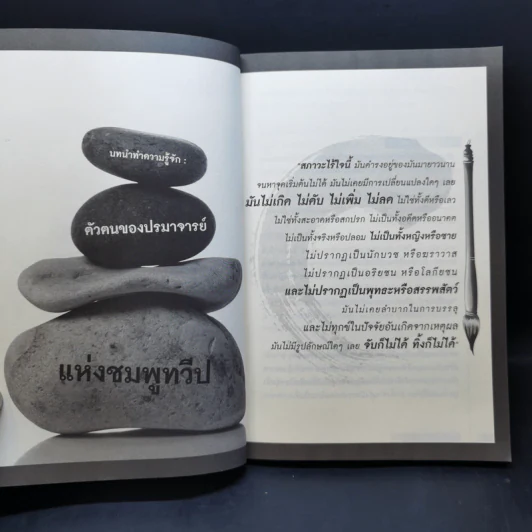 บทนำทำความรู้จัก :
ตัวตนของปรมาจารย์
แห่งชมพูทวีป
"สภาวะไร้ใจนี้ มันดำรงอยู่ของมันมายาวนาน
จนหาจุดเริ่มต้นไม่ได้ มันไม่เคยมีการเปลี่ยนแปลงใดๆ เลย
มันไม่เกิด ไม่ดับ ไม่เพิ่ม ไม่ลด ไม่ใช่ทั้งดีหรือเลว
ไม่ใช่ทั้งสะอาดหรือสกปรก ไม่เป็นทั้งอดีตหรืออนาคต
ไม่เป็นทั้งจริงหรือปลอม ไม่เป็นทั้งหญิงหรือชาย
ไม่ปรากฏเป็นนักบวช หรือฆราวาส
ไม่ปรากฏเป็นอริยชน หรือโลกียชน
และไม่ปรากฏเป็นพุทธะหรือสรรพสัตว์
มันไม่เคยลำบากในการบรรลุ
และไม่ทุกข์ในปัจจัยอันเกิดจากเหตุผล
มันไม่มีรูปลักษณ์ใดๆ เลย จับก็ไม่ได้ ทิ้งก็ไม่ได้"